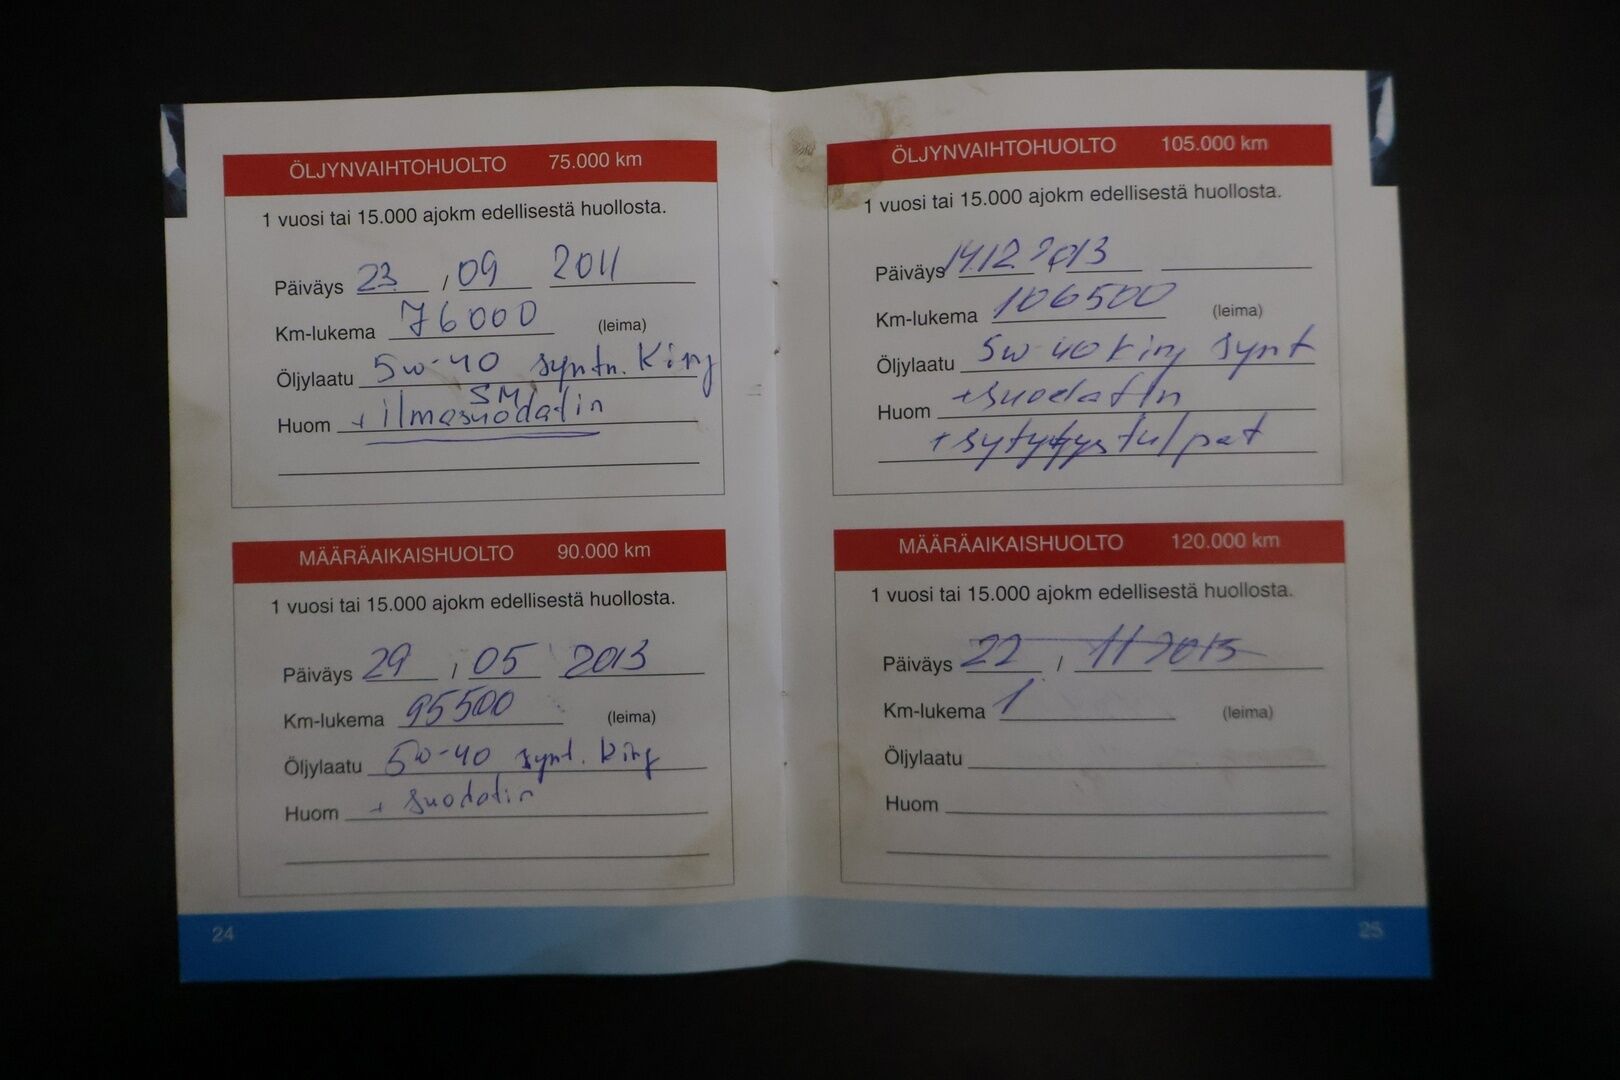 ÖLJYNVAIHTOHUOLTO 75.000 km
1 vuosi tai 15.000 ajokm edellisestä huollosta.
Päiväys 23 / 09 2011
Km-lukema 76000 (leima)
Öljylaatu 5w-40 synt. King
SM
Huom + ilmasuodatin
MÄÄRÄAIKAISHUOLTO 90.000 km
1 vuosi tai 15.000 ajokm edellisestä huollosta.
Päiväys 29 / 05 2013
Km-lukema 95500 (leima)
Öljylaatu 5w-40 synt. King
Huom + suodatin
24
ÖLJYNVAIHTOHUOLTO 105.000 km
1 vuosi tai 15.000 ajokm edellisestä huollosta.
Päiväys 14.12 2013
Km-lukema 106500 (leima)
Öljylaatu 5w-40 King synt
Huom +suodatin
+sytytystulpat
MÄÄRÄAIKAISHUOLTO 120.000 km
1 vuosi tai 15.000 ajokm edellisestä huollosta.
Päiväys 22 / 11 2013
Km-lukema 1 (leima)
Öljylaatu
Huom
25